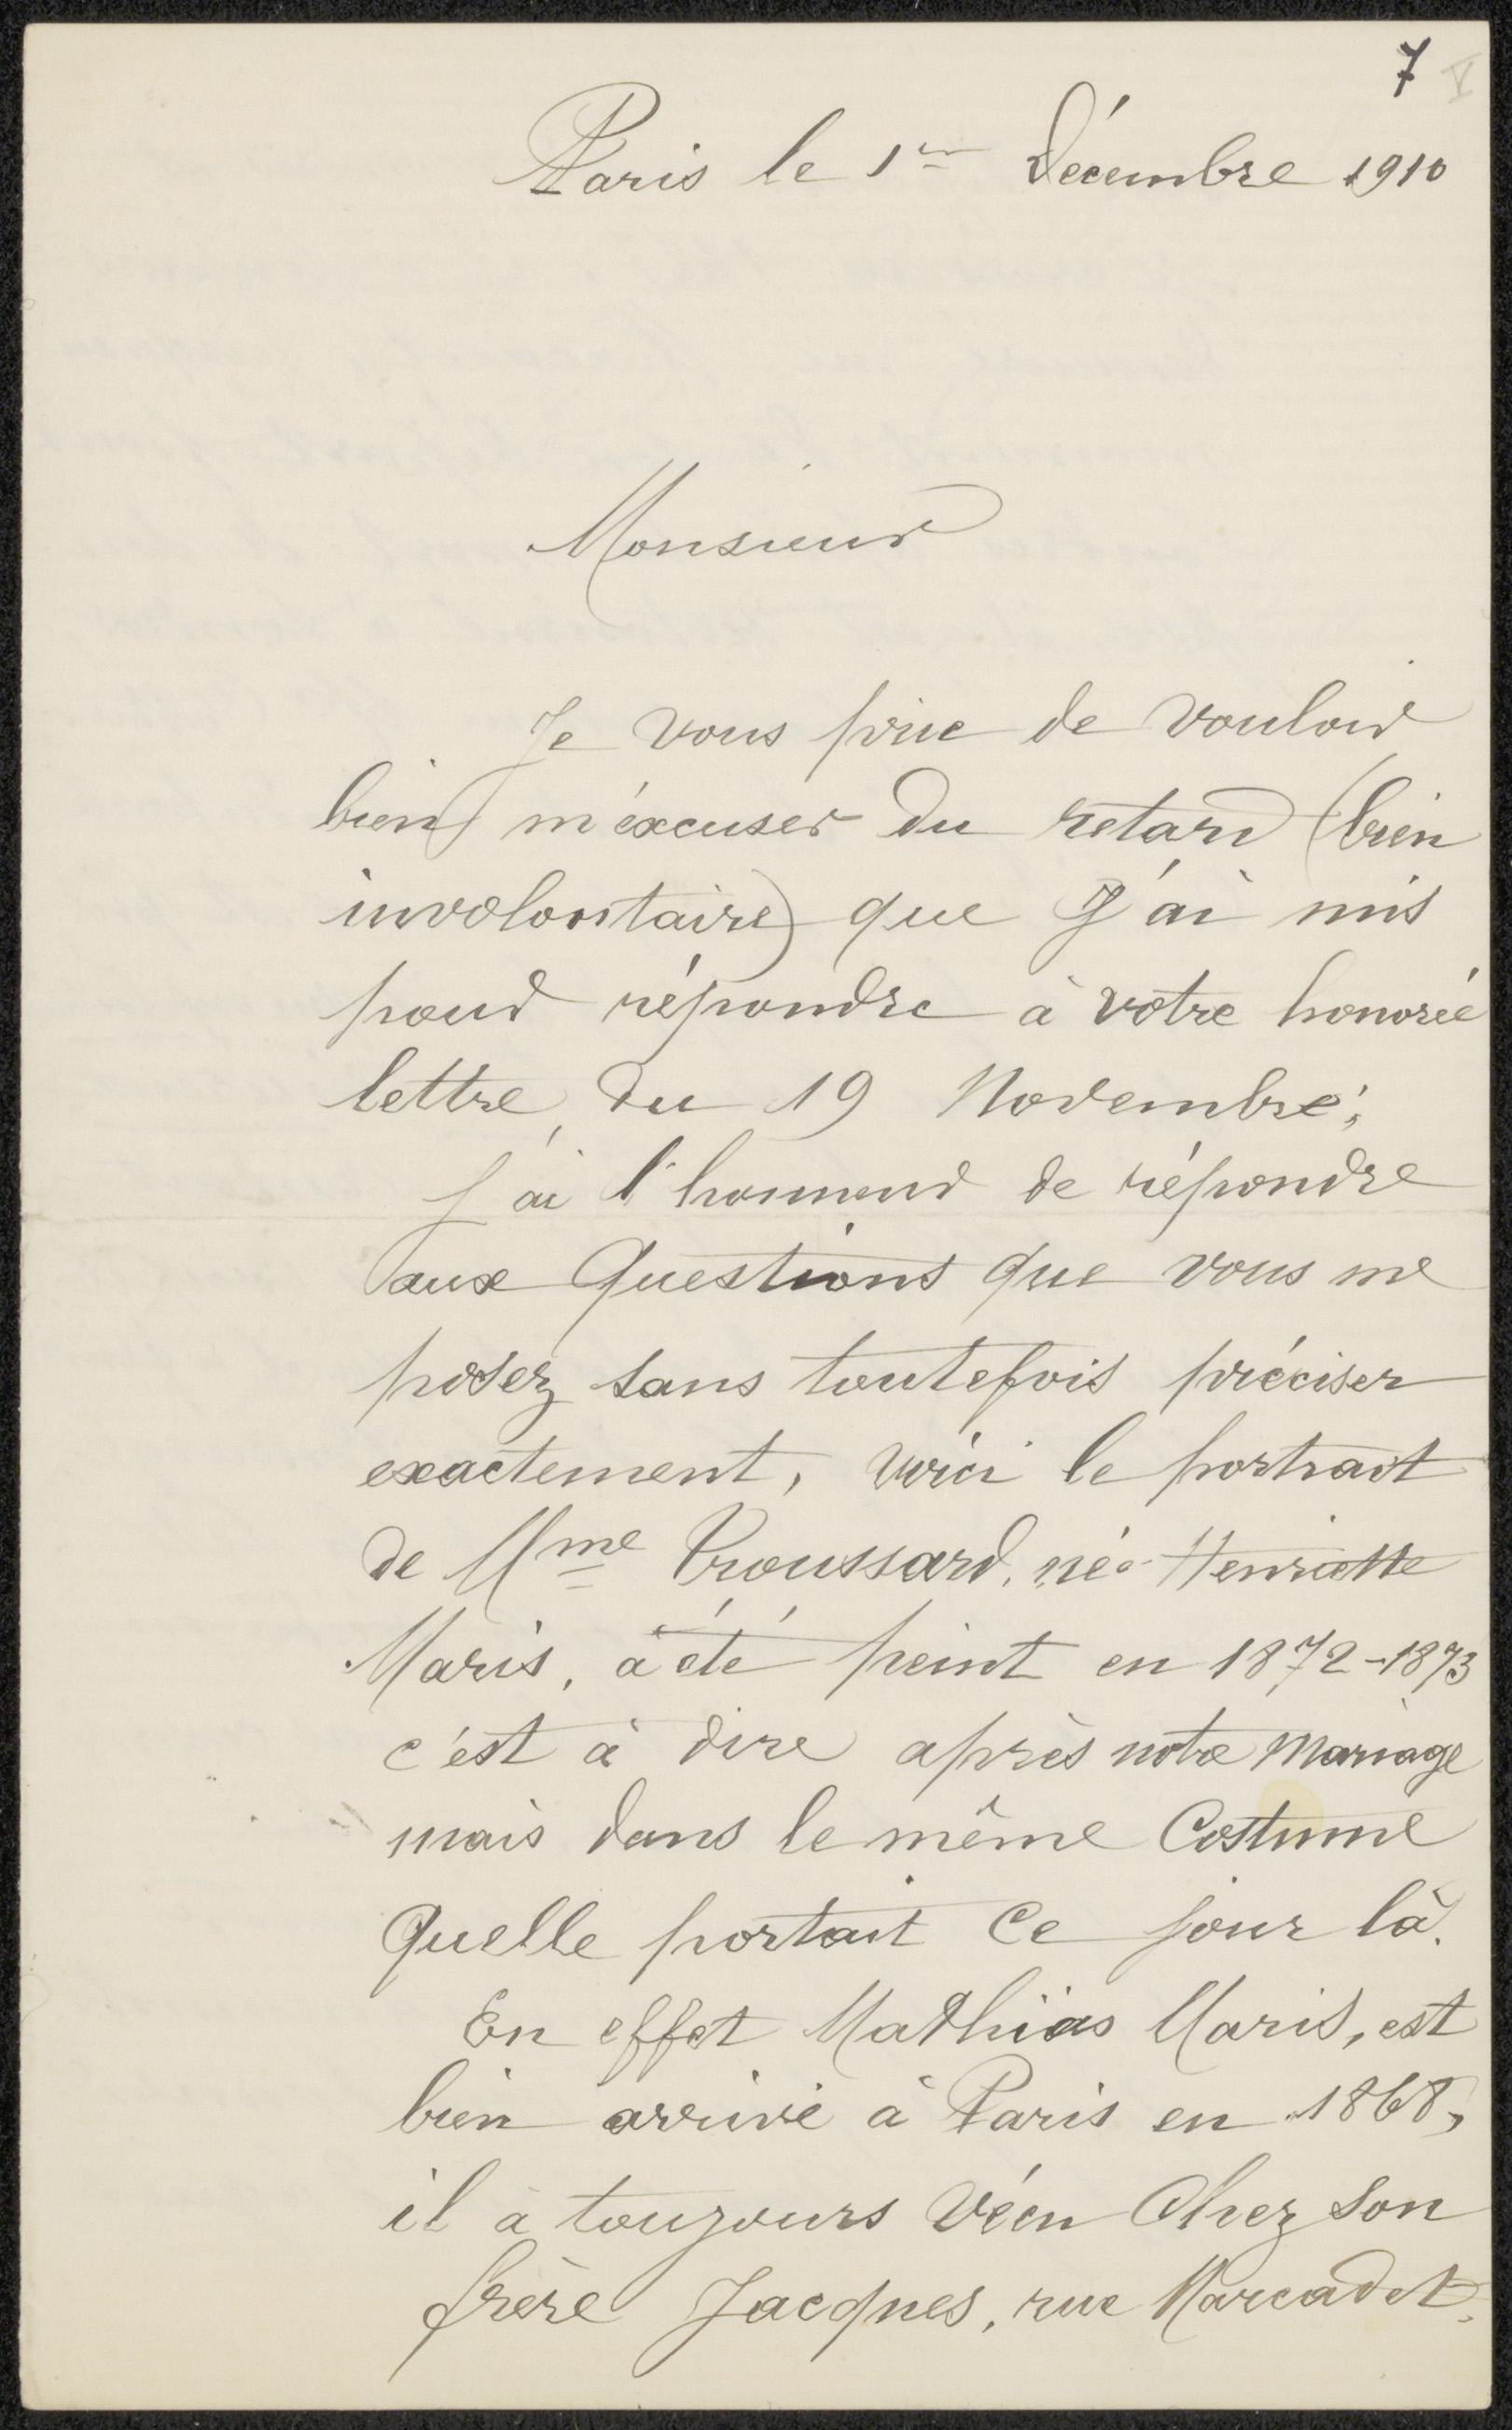 7 V
Paris le 1er Décembre 1910
Monsieur
Je vous prie de vouloir
bien m'éxcuser du retard (bien
involontaire) que J'ai mis
pour répondre à votre honorée
lettre du 19 Novembre;
J'ai l'honneur de répondre
aux Questions que vous me
posez sans toutefois préciser
exactement, voici le portrait
de Mme Proussard, née Henriette
Maris, à été peint en 1872-1873
c'est à dire après notre Mariage
mais dans le même Costume
Quelle portait Ce jour là.
En effet Mathias Maris, est
bien arrivé à Paris en 1868,
il à toujours Vécu Chez Son
frère Jacques, rue Marcadet.